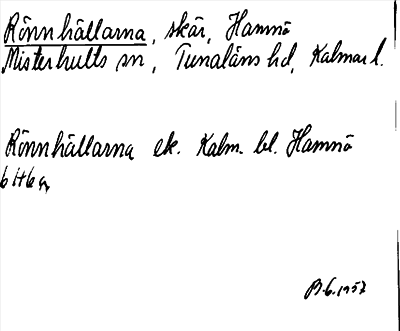 Rönnhällarna, skär, Hamnö
Misterhults sn, Tunaläns hd, Kalmar l.
Rönnhällarna ek. Kalm. bl. Hamnö
6 H 6 a
B.G. 1957